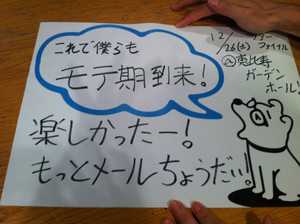 これで僕らも
モテ期到来!
12/26(土)ツアーファイナル
@恵比寿
ガーデン
ホール!
楽しかったー!
もっとメールちょうだい!